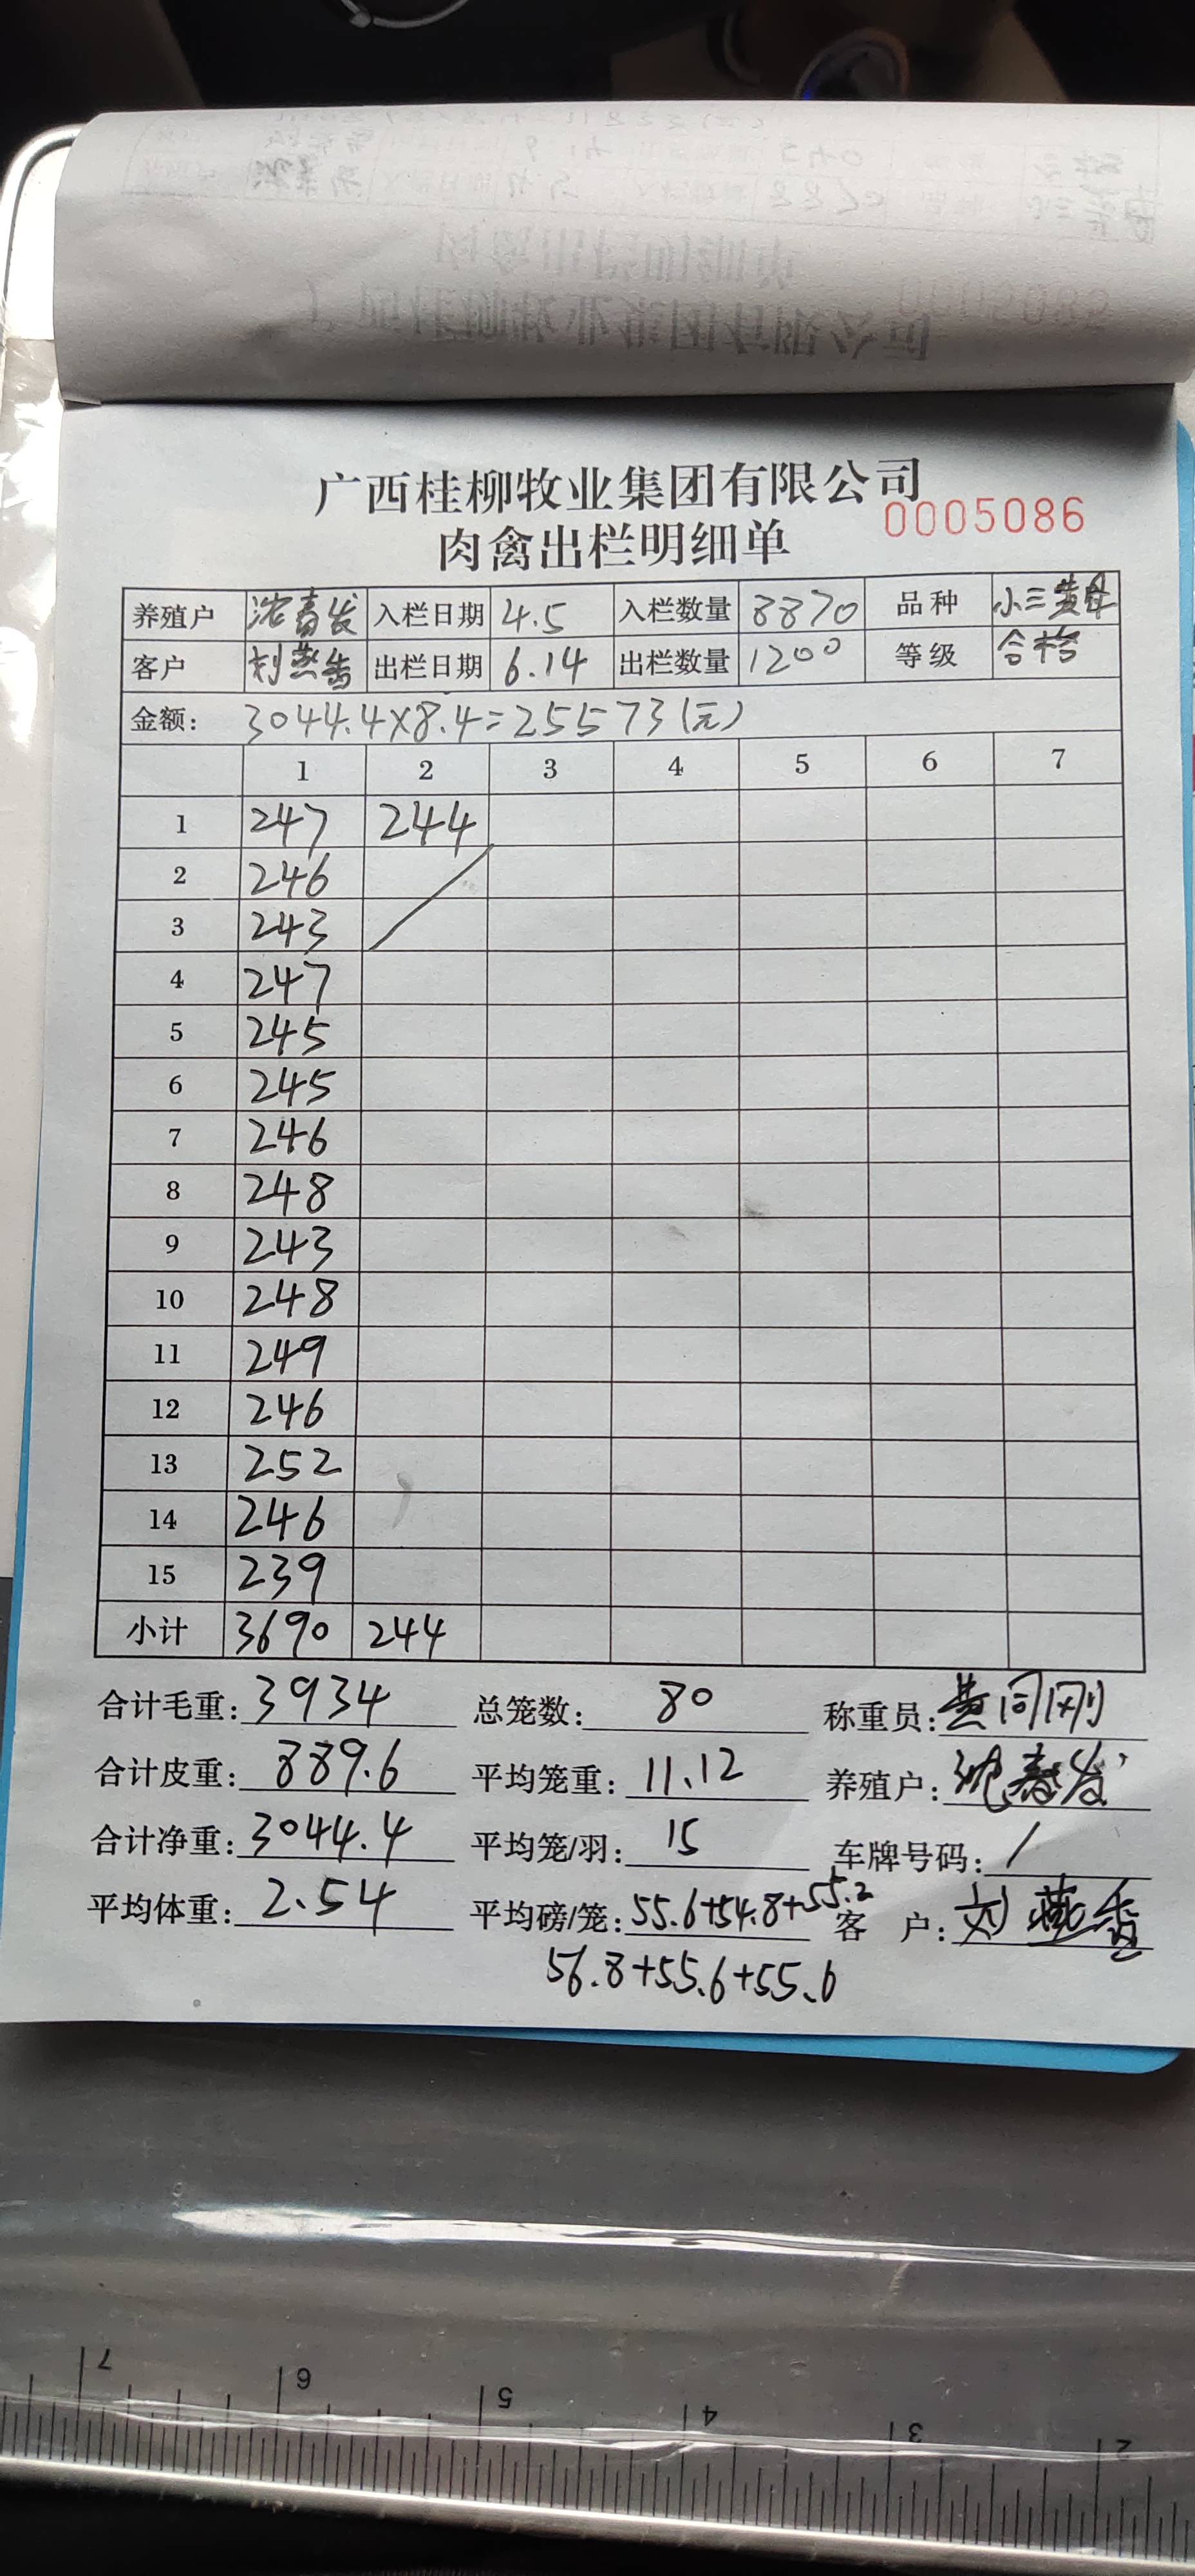 广西桂柳牧业集团有限公司
0005086
肉禽出栏明细单
养殖户 沈春发 入栏日期 4.5 入栏数量 8870 品种 小三黄母
客户 刘燕香 出栏日期 6.14 出栏数量 1200 等级 合格
金额: 3044.4×8.4=25573(元)
1 2 3 4 5 6 7
1 247 244
2 246
3 243
4 247
5 245
6 245
7 246
8 248
9 243
10 248
11 249
12 246
13 252
14 246
15 239
小计 3690 244
合计毛重: 3934 总笼数: 80 称重员: 黄同刚
合计皮重: 889.6 平均笼重: 11.12 养殖户: 沈春发
合计净重: 3044.4 平均笼/羽: 15 车牌号码: /
平均体重: 2.54 平均磅/笼: 55.6+54.8+55.2 客户: 刘燕香
56.8+55.6+55.6
7 6 5 4 3 2